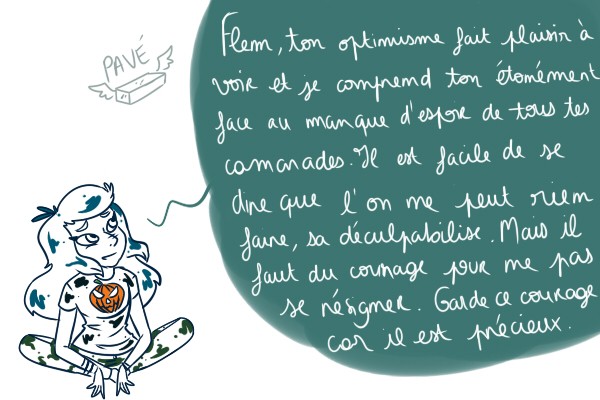 PAVÉ
Flem, ton optimisme fait plaisir à
voir et je comprend ton étonément
face au manque d'espoir de tous tes
camarades. Il est facile de se
dire que l'on ne peut rien
faire, sa déculpabilise. Mais il
faut du courage pour ne pas
se résigner. Garde ce courage
car il est précieux.